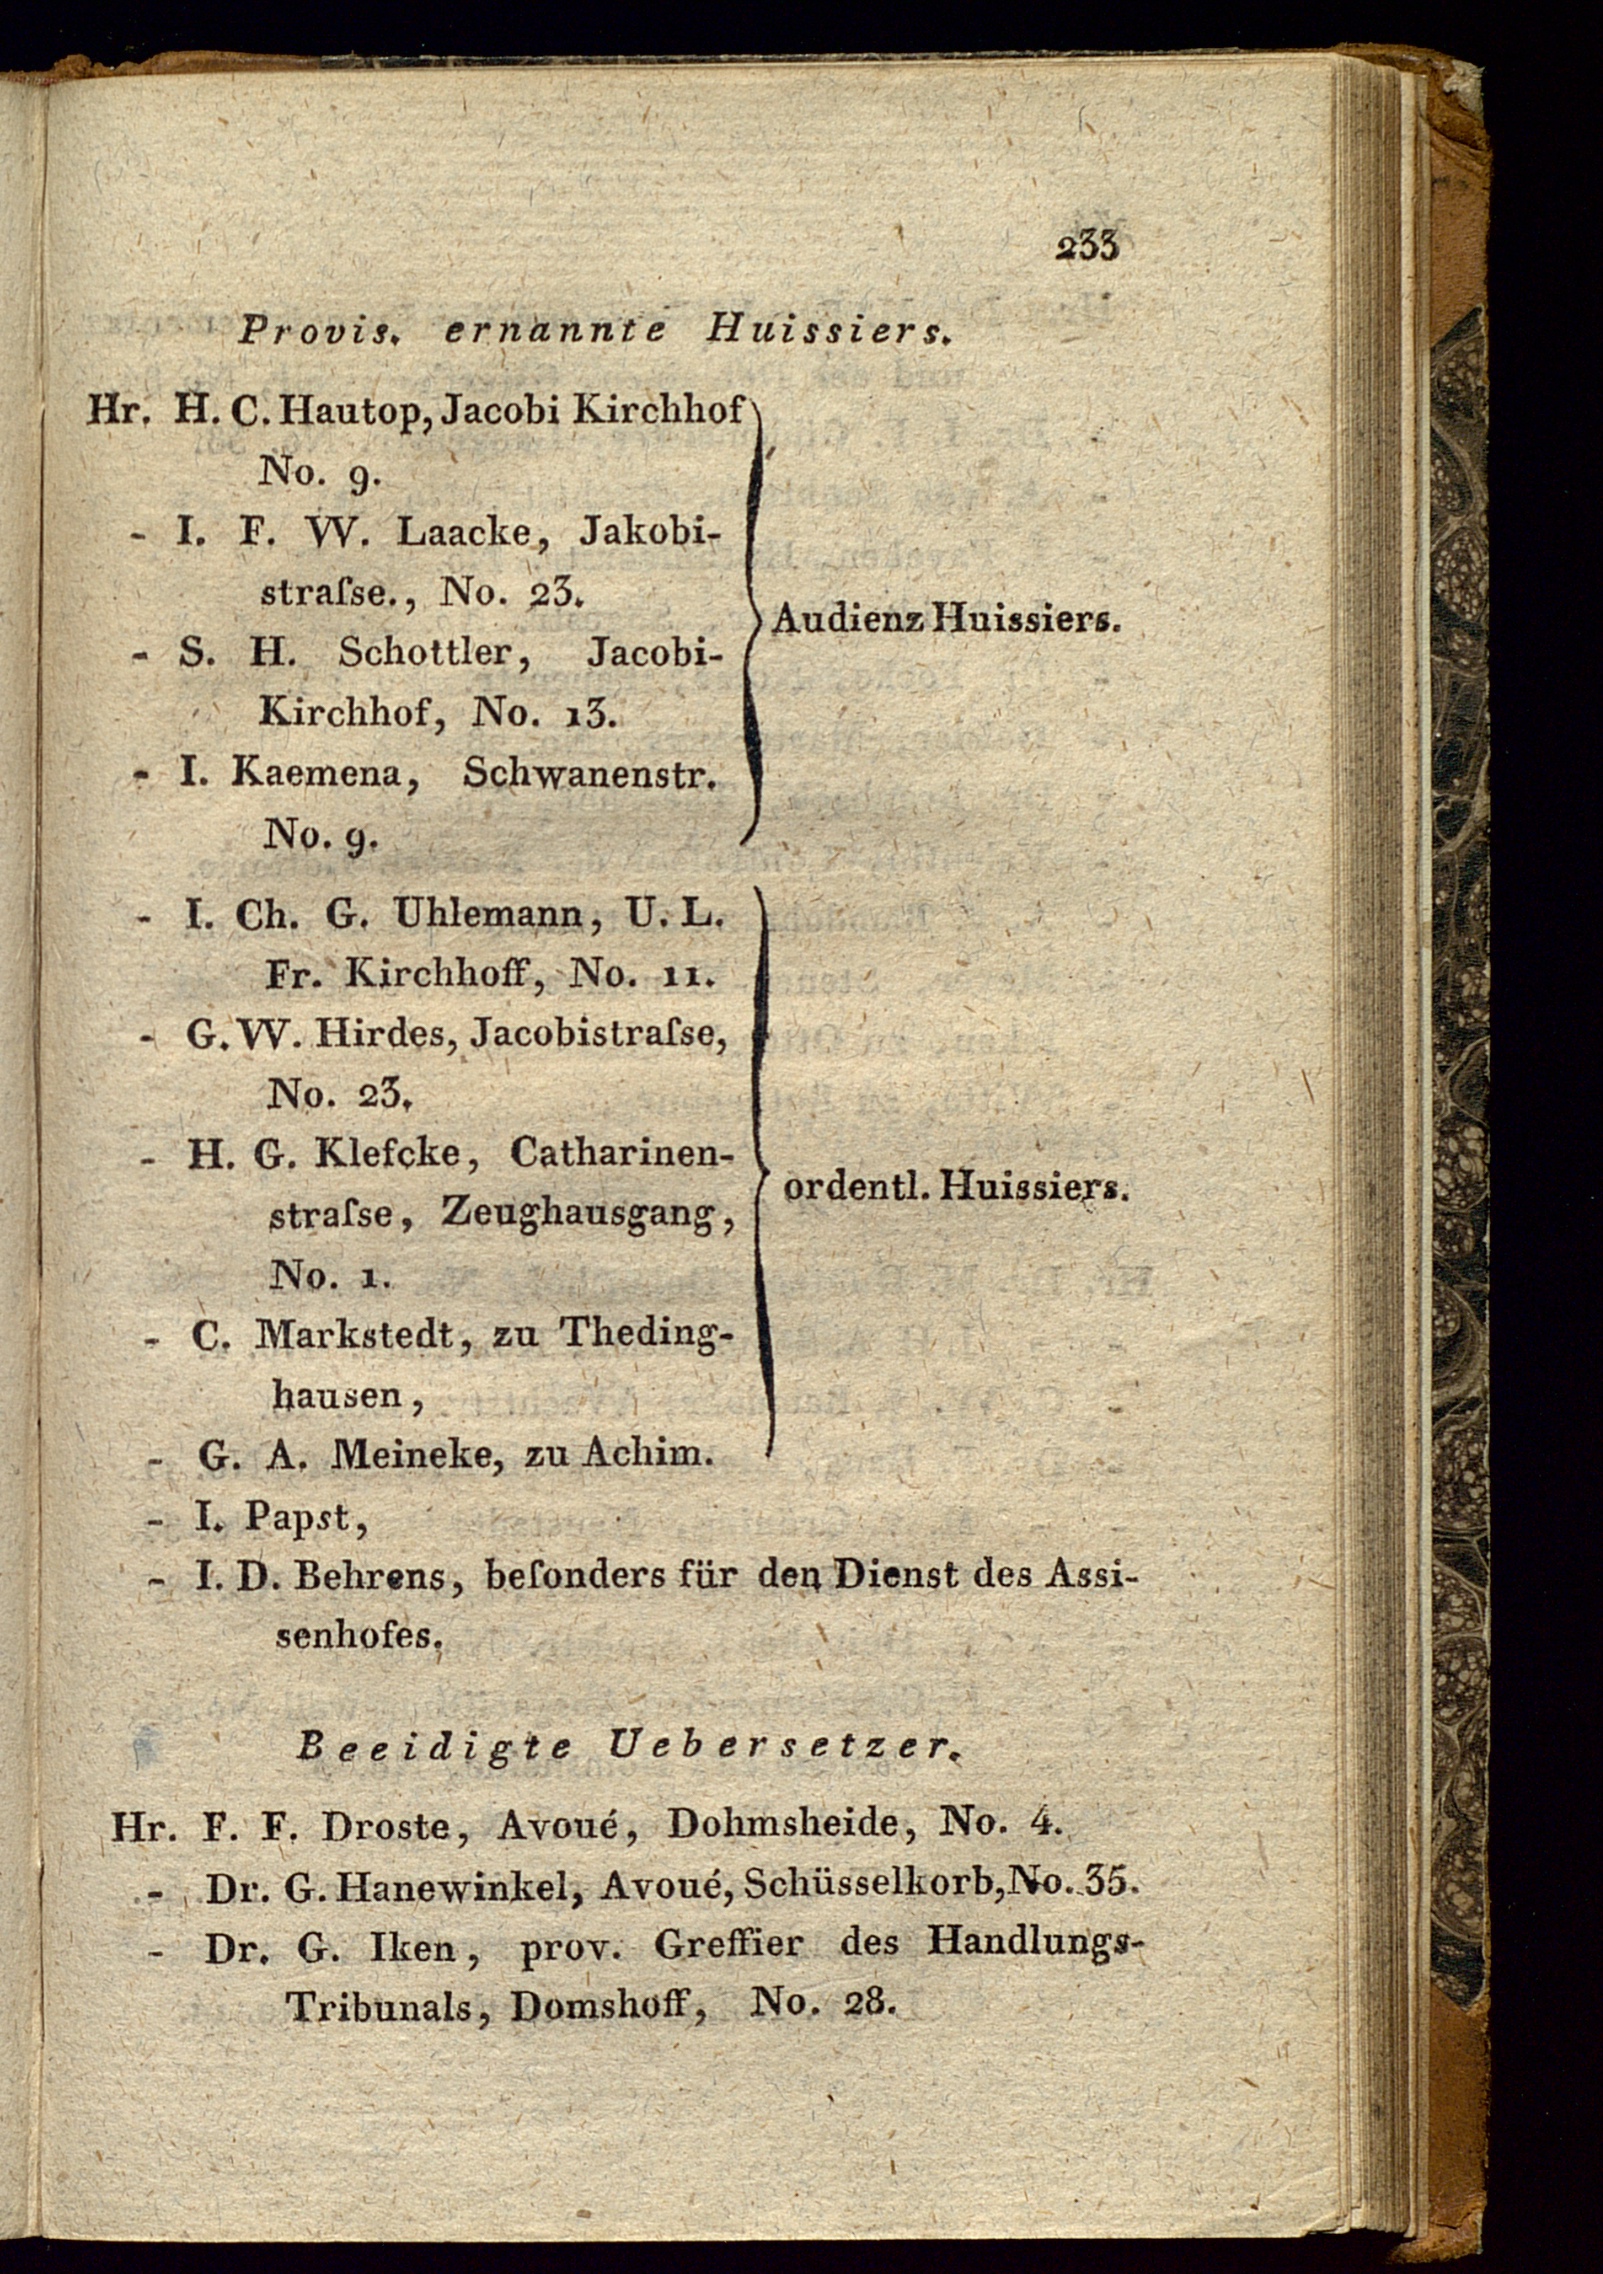 233
Provis. ernannte Huissiers.
Hr. H. C. Hautop, Jacobi Kirchhof
No. 9.
- I. F. W. Laacke, Jakobi-
straſse., No. 23.
- S. H. Schottler, Jacobi-
Kirchhof, No. 13.
- I. Kaemena, Schwanenstr.
No. 9.
Audienz Huissiers.
- I. Ch. G. Uhlemann, U. L.
Fr. Kirchhoff, No. 11.
- G. W. Hirdes, Jacobistraſse,
No. 23.
- H. G. Klefcke, Catharinen-
straſse, Zeughausgang,
No. 1.
- C. Markstedt, zu Theding-
hausen,
- G. A. Meineke, zu Achim.
ordentl. Huissiers.
- I. Papst,
- I. D. Behrens, beſonders für den Dienst des Assi-
senhofes.
Beeidigte Uebersetzer.
Hr. F. F. Droste, Avoué, Dohmsheide, No. 4.
- Dr. G. Hanewinkel, Avoué, Schüsselkorb, No. 35.
- Dr. G. Iken, prov. Greffier des Handlungs-
Tribunals, Domshoff, No. 28.